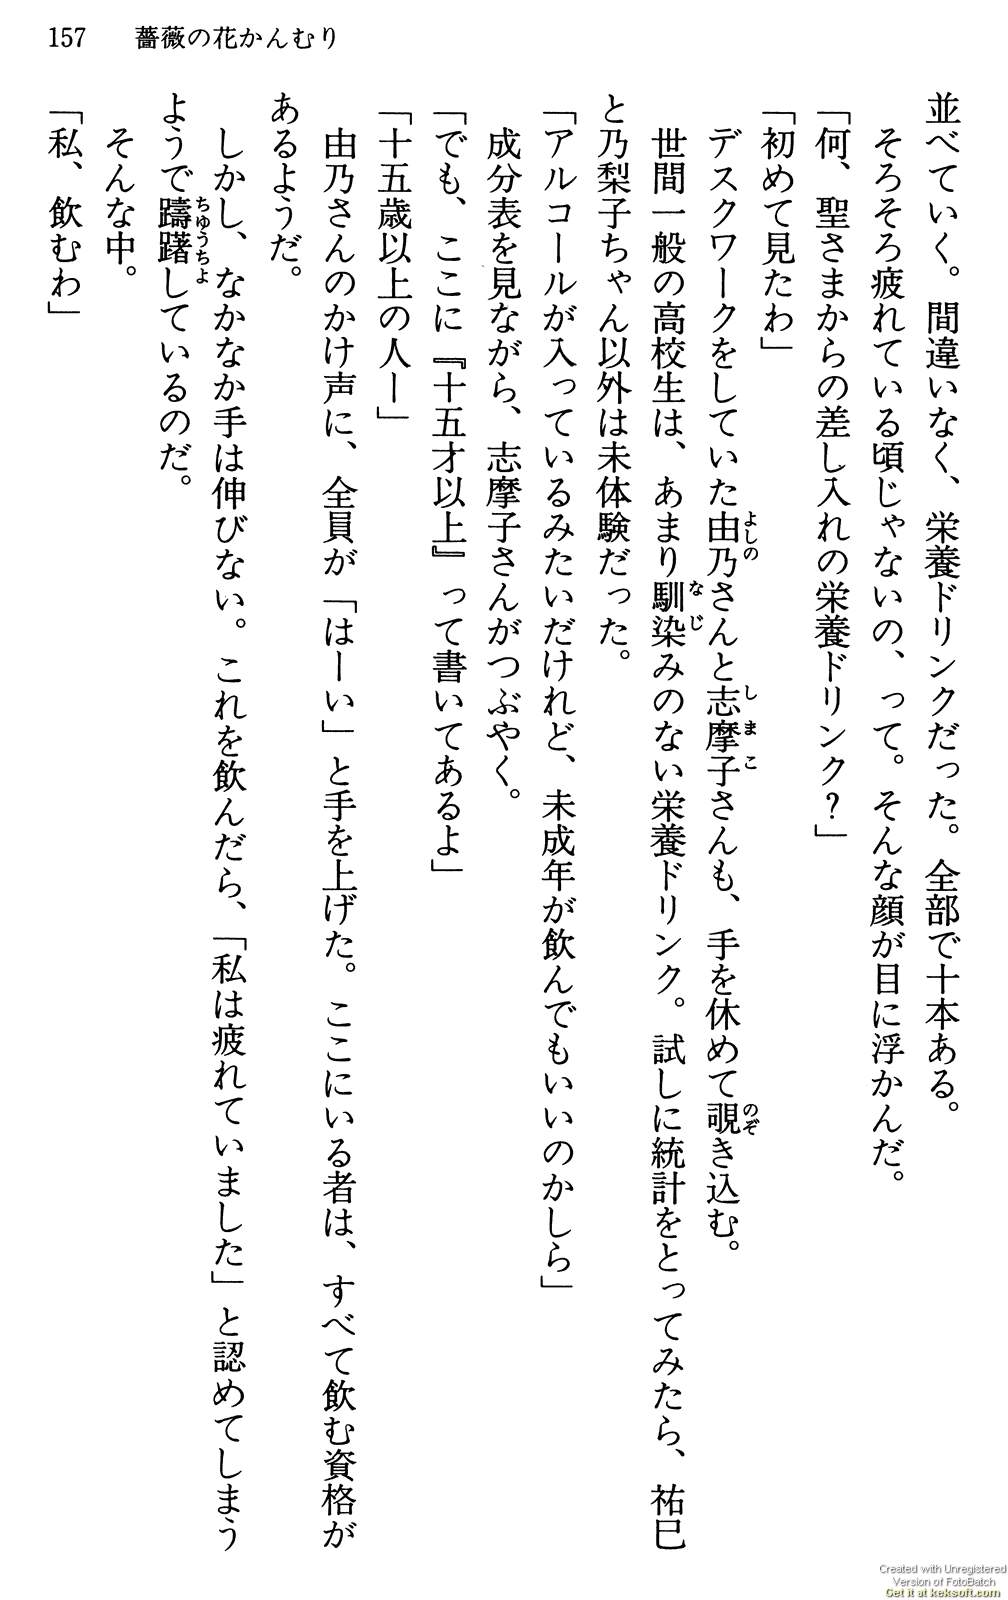 157　薔薇の花かんむり
並べていく。間違いなく、栄養ドリンクだった。全部で十本ある。
そろそろ疲れている頃じゃないの、って。そんな顔が目に浮かんだ。
「何、聖さまからの差し入れの栄養ドリンク？」
「初めて見たわ」
デスクワークをしていた由乃さんと志摩子さんも、手を休めて覗き込む。
世間一般の高校生は、あまり馴染みのない栄養ドリンク。試しに統計をとってみたら、祐巳
と乃梨子ちゃん以外は未体験だった。
「アルコールが入っているみたいだけれど、未成年が飲んでもいいのかしら」
成分表を見ながら、志摩子さんがつぶやく。
「でも、ここに『十五才以上』って書いてあるよ」
「十五歳以上の人ー」
由乃さんのかけ声に、全員が「はーい」と手を上げた。ここにいる者は、すべて飲む資格が
あるようだ。
しかし、なかなか手は伸びない。これを飲んだら、「私は疲れていました」と認めてしまう
ようで躊躇しているのだ。
そんな中。
「私、飲むわ」
Created with Unregistered
Version of FotoBatch
Get it at keksoft.com